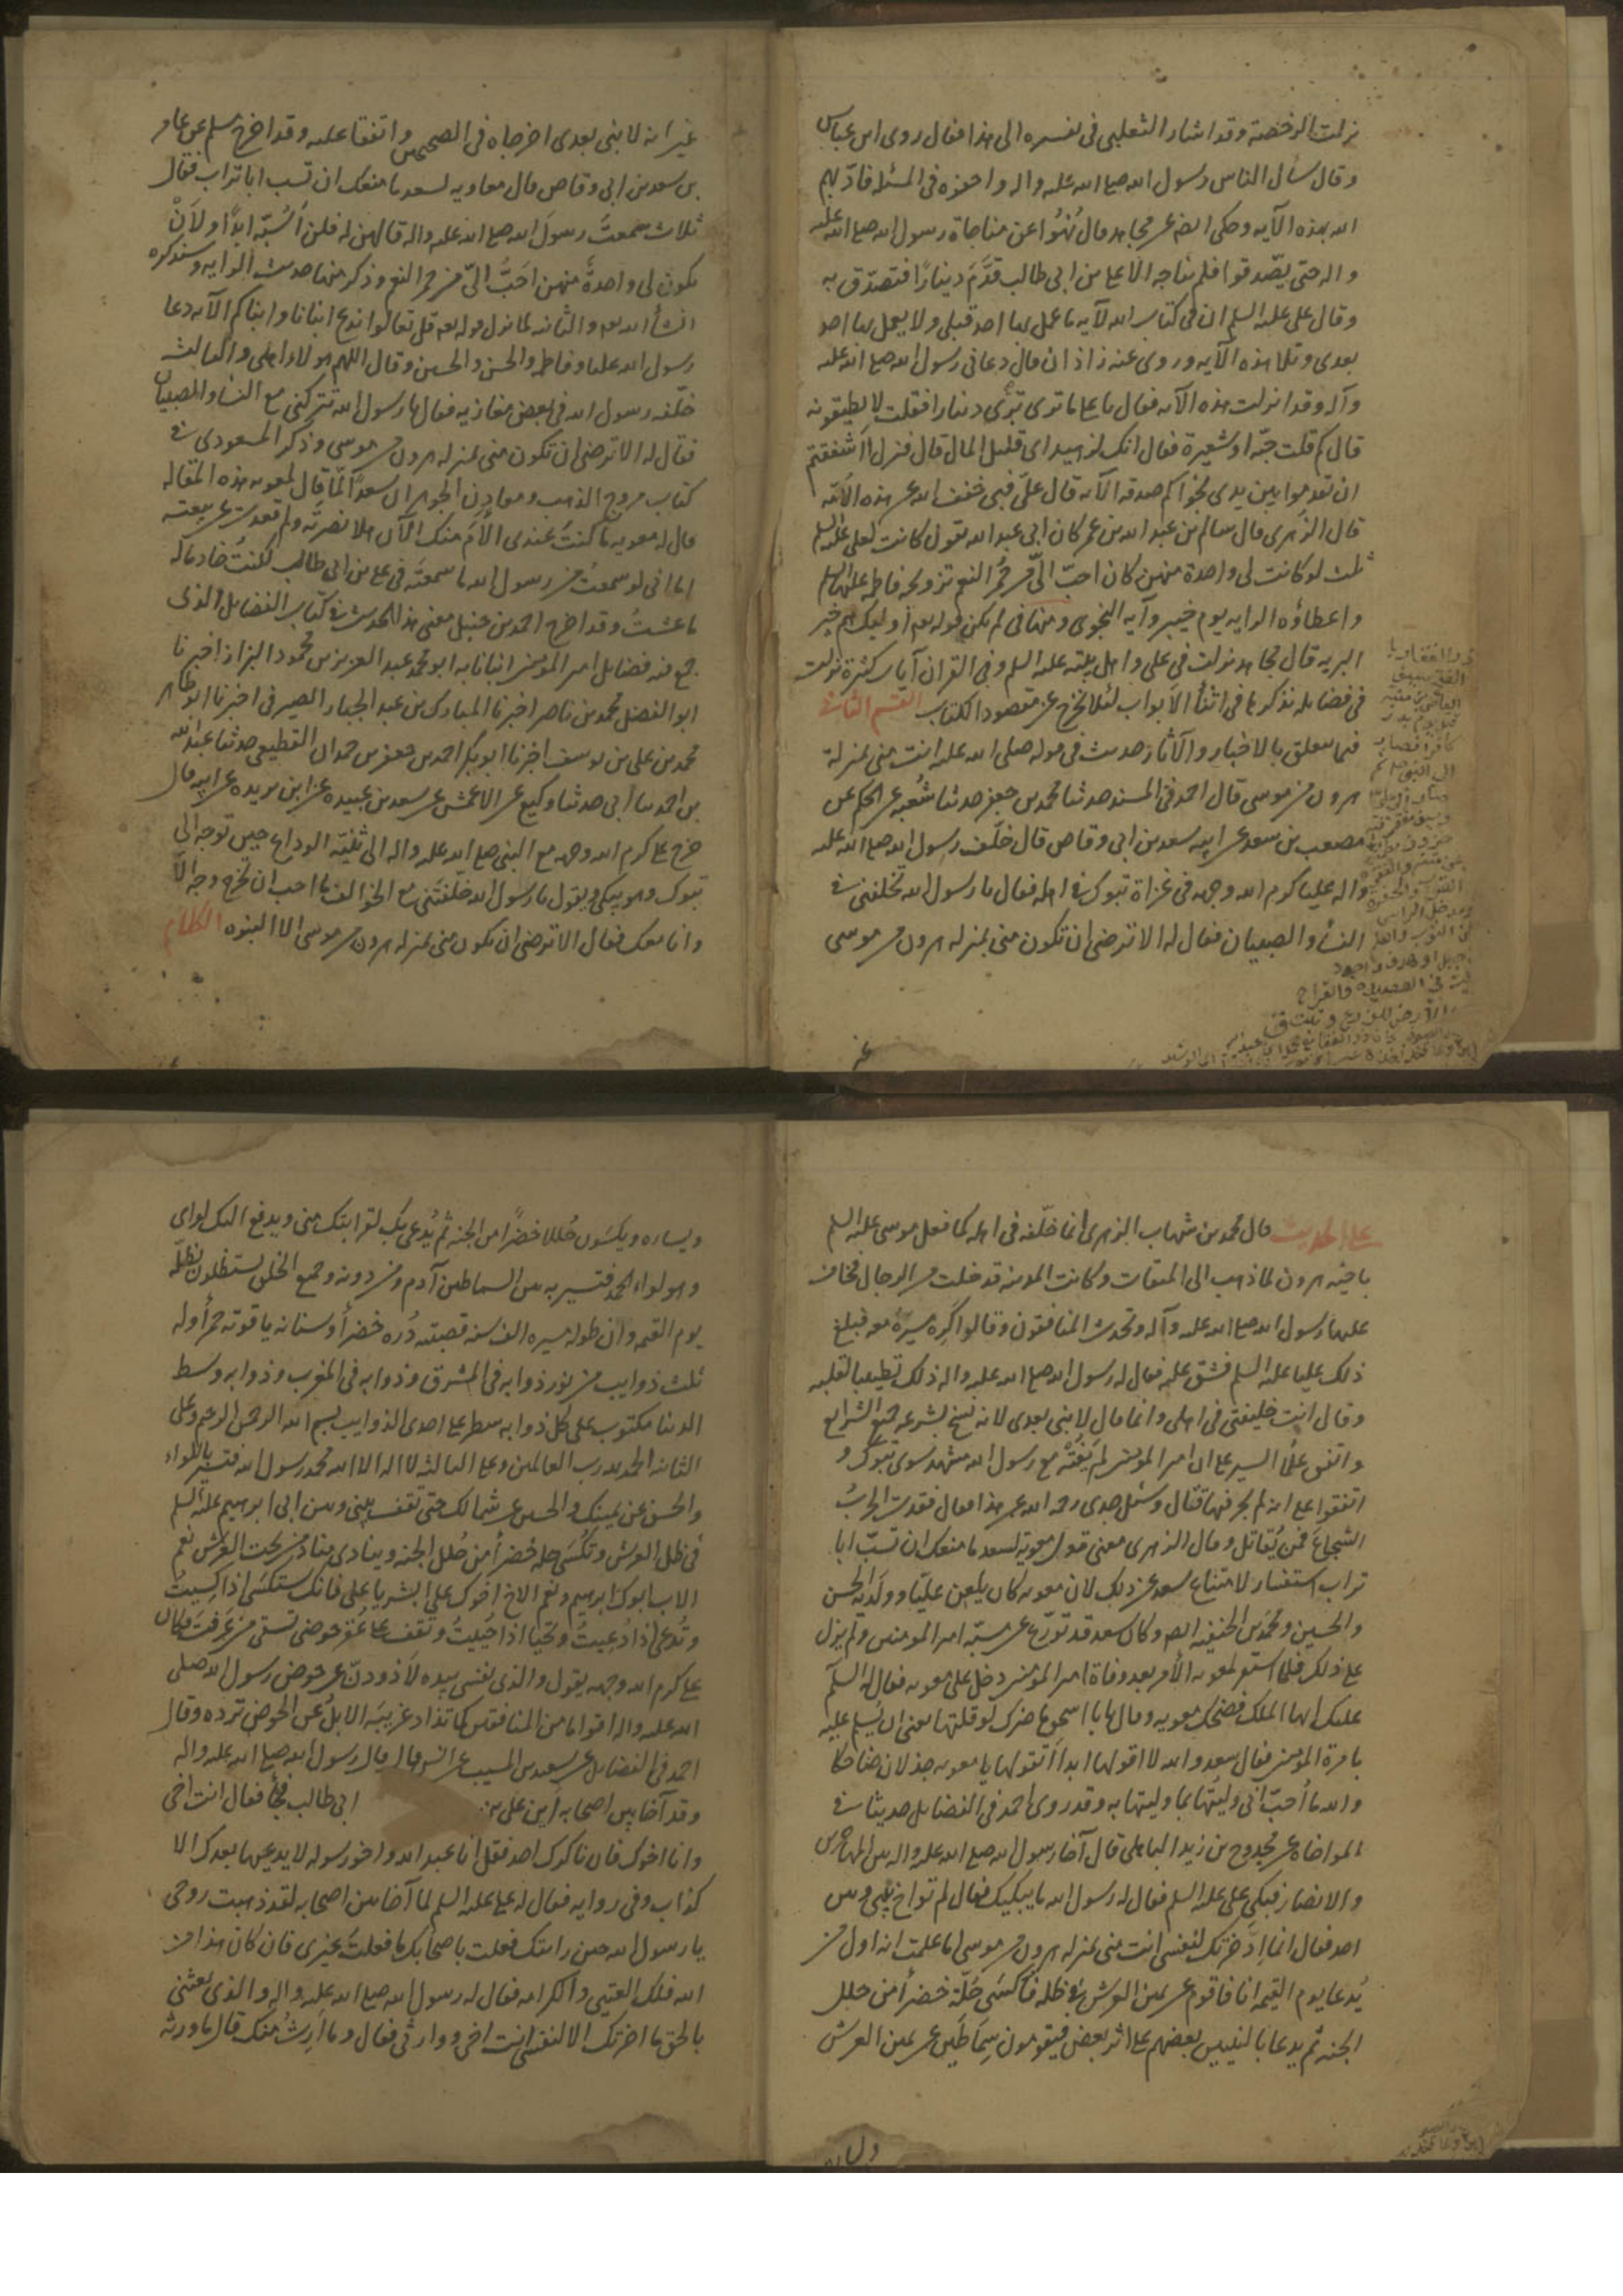 نزلت الرخصة وقد اشار الثعلبي في تفسيره الى هذا فقال روى ابن عباس
وقال سأل الناس رسول الله صلى الله عليه واله واحفوه في المسئله فادّبهم
الله بهذه الآيه وحكى ايضا عن مجاهد قال نُهُوا عن مناجاة رسول الله صلى الله عليه
واله حتى يصّدقوا فلم يناجه الا علي بن ابي طالب قدَّمَ دينارًا فتصدّق به
وقال علي عليه السلم ان في كتاب الله لآيه ما عمل بها احد قبلي ولا يعمل بها احد
بعدي وتلا هذه الآيه وروى عنه زاذان قال دعاني رسول الله صلى الله عليه
وآله وقد انزلت هذه الآيه فقال يا علي ما ترى ترى دينارا فقلت لا يطيقونه
قال كم قلت حبّه او شعيرة فقال انك لزهيد اى قليل المال قال فنزل أاشفقتم
ان تقدموا بين يدى نجواكم صدقه الآيه قال علي فبي خفف الله عن هذه الأمّه
قال الزهرى قال سالم بن عبد الله بن عمر كان ابي عبد الله يقول كانت لعلي عليه السلم
ثلث لو كانت لى واحدة منهن كان احبّ الىّ من حُمُر النعم تزويجه فاطمه عليها السلم
واعطاؤه الرايه يوم خيبر وآيه النجوى ومنها في لم يكن قوله تعه اوليك هم خير
البريه قال مجاهد نزلت في علي واهل بيته عليه السلم وفي القران آيات كثيرة نزلت
في فضايله نذكرها في اثنأ الابواب لئلا نخرج عن مقصود الكتاب القسم الثاني
فيما يتعلق بالاخبار والآثار حديث في قوله صلى الله عليه انت مني بمنزلة
هرون من موسى قال احمد في المسند حدثنا محمد بن جعفر حدثنا شُعبه عن الحكم عن
مصعب بن سعد عن ابيه سعد بن ابي وقاص قال خلّف رسول الله صلى الله عليه
واله عليا كرم الله وجهه في غزاة تبوك في اهله فقال يا رسول الله تخلفني في
النسأ والصبيان فقال له الا ترضى ان تكون مني بمنزله هرون من موسى
غير انه لا نبي بعدى اخرجاه في الصحيحين واتفقا عليه وقد اخرج مسلم عن عامر
بن سعد بن ابي وقاص قال قال معاويه لسعد ما منعك ان تسب ابا تراب فقال
ثلاث سمعتُ رسولَ الله صلى الله عليه واله قالهن له فلن اسُبّه ابدًا ولَاَنْ
يكون لى واحدةٌ منهن احَبُّ الىّ من حمر النعم وذكر منها حديث الرايه وسنذكره
انشأ الله تعه والثانيه لما نزل قوله تعه قل تعالوا ندع ابنانا وابناكم الآيه دعا
رسول الله عليا وفاطمه والحسن والحسين وقال اللهم هولاء اهلي والثالث
خلّفه رسول الله في بعض مغازيه فقال يا رسول الله تتركني مع النسأ والصبيان
فقال له الا ترضى ان تكون مني بمنزله هرون من موسى وذكر المسعودى في
كتاب مروج الذهب ومعادن الجوهر ان سعدًا لمّا قال لمعويه هذه المقاله
قال له معويه ما كنتَ عندى ألأم منك الآن هلا نصرتَه ولم قعدت عن بيعته
اما اني لو سمعتُ من رسول الله ما سمعتَه في علي بن ابي طالب لكنتُ خادما له
ما عشتُ وقد اخرج احمد بن حنبل معنى هذا الحديث في كتاب الفضايل الذى
جمع فيه فضايل امير المؤمنين انبانا به ابو محمد عبد العزيز بن محمود البزاز اخبرنا
ابو الفضل محمد بن ناصر اخبرنا المبارك بن عبد الجبار الصيرفي اخبرنا ابو طاهر
محمد بن علي بن يوسف اخبرنا ابو بكر احمد بن جعفر بن حمدان القطيعي حدثنا عبد الله
بن احمد سا أبي حدثنا وكيع عن الاعمش عن سعد بن عبيده عن ابن بريده عن ابيه قال
خرج علي كرم الله وجهه مع النبي صلى الله عليه واله الى ثنيّه الوداع حين توجه الى
تبوك وهو يبكي ويقول يا رسول الله خلّفتني مع الخوالف ما احب ان تخرج وجه الا
وانا معك فقال الا ترضى ان تكون مني بمنزله هرون من موسى الا النبوه الكلام
على الحديث قال محمد بن شهاب الزهرى انما خلّفه في اهله كما فعل موسى عليه السلم
باخيه هرون لما ذهب الى الميقات وكانت المدينه قد خلت من الرجال فخاف
عليها رسول الله صلى الله عليه وآله وتحدث المنافقون وقالوا كره سيرَهُ معه فبلغ
ذلك عليا عليه السلم فشق عليه فقال له رسول الله صلى الله عليه واله ذلك تطييبا لقلبه
وقال انت خليفتي في اهلي وانما قال لا نبي بعدى لانه نسخ بشرعه جميع الشرايع
واتفق علمأ السير على ان امير المؤمنين لم يَفُتْهُ مع رسول الله مشهد سوى تبوك و
اتفقوا على انه لم يجر فيها قتال وسُئل جدى رحمه الله عن هذا فقال فقدت الحربُ
الشجاعَ فمن يُقاتل وقال الزهرى معنى قول معويه لسعد ما منعك ان تسبّ ابا
تراب استفسار لامتناع سعد عن ذلك لان معويه كان يلعن عليّا وولَدَيْه الحسن
والحسين ومحمد بن الحنفيه ايضا وكان سعد قد تورّع عن مسبّه امير المومنين ولم يزل
على ذلك فلما استقر لمعويه الأمر بعد وفاة امير المؤمنين دخل على معويه فقال له السلم
عليك ايها الملك فضحك معويه وقال يا با اسحق ما ضرك لو قلتها يعني ان يُسلم عليه
بامرة المؤمنين فقال سعد والله لا اقولها ابدا اتقولها يا معويه جذلان ضاحكا
والله ما أُحبّ اني وليتُها بما وليتها به وقد روى احمد في الفضايل حديثا في
المواخاة عن مجدوح بن زيد الباهلي قال آخا رسول الله صلى الله عليه واله بين المهاجرين
والانصار فبكى علي عليه السلم فقال له رسول الله ما يبكيك فقال لم تواخ بيني وبين
احد فقال انما ادّخرتك لنفسي انت مني بمنزله هرون من موسى اما علمت انه اول من
يُدعا يوم القيمه انا فاقوم عن يمين العرش في ظله فاكسَى حُلّة خضرأ من حلل
الجنه ثم يدعا بالنبيين بعضهم على اثر بعض فيقومون سِمَاطَين عن يمين العرش
ويساره ويكسَون حُللا خضرًا من الجنه ثم يُدعى بك لقرابتك مني ويدفع اليك لواى
وهو لواء الحمد فتسير به بين السماطين آدم ومن دونه وجميع الخلق يستظلون بظلّه
يوم القيمه وان طوله مسيره الف سنه قصبته دُره خضرأ وسنانه ياقوته حمرأ وله
ثلث ذوايب من نور ذوابه في المشرق وذوابه في المغرب وذوابه وسط
الدنيا مكتوب على كل ذوابه سطر على احدى الذوايب بسم الله الرحمن الرحيم وعلى
الثانيه الحمد لله رب العالمين وعلى الثالثه لا اله الا الله محمد رسول الله فتسير باللواء
والحسن عن يمينك والحسين عن شمالك حتى تقف بيني وبين ابي ابرهيم عليه السلم
في ظل العرش وتُكسَى حله خضرأ من حُلل الجنه وينادى مناد من تحت العرش نعم
الاب ابوك ابرهيم ونعم الاخ اخوك علي ابشر يا علي فانك ستكسَى اذا كُسِيتُ
وتُدعَى اذا دُعِيتُ وتُحَيّا اذا حُيِيتُ وتقف على عُقر حوضي تسقى من عَرَفتَ وكان
علي كرم الله وجهه يقول والذى نفسي بيده لاذودنّ عن حوض رسول الله صلى
الله عليه واله اقواما من المنافقين كما تذاد غريبَة الابلُ عن الحوض ترده وقال
احمد في الفضايل عن سعيد بن المسيب عن انس قال قال رسول الله صلى الله عليه واله
وقد آخا بين اصحابه اين علي بن ابي طالب فجأ فقال انت اخي
وانا اخوك فان ناكرك احد فقل انا عبد الله واخو رسوله لا يدعيها بعدك الا
كذاب وفي روايه فقال له علي عليه السلم لما آخا بين اصحابه لقد ذهبت روحي
يا رسول الله حين رايتك فعلت باصحابك ما فعلتَ غيرى فان كان هذا من
الله فلك العتبى والكرامه فقال له رسول الله صلى الله عليه واله والذى بعثني
بالحق ما اخرتك الا لنفسي انت اخي ووارثي فقال وما ارِثُ منك قال ما ورثه